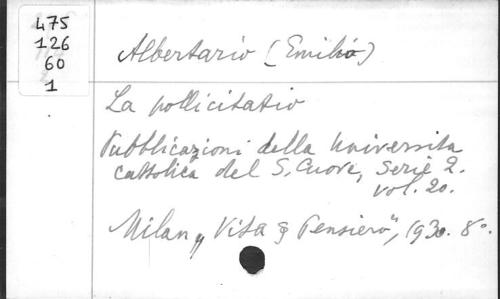 475
126
60
1
Albertario (Emilio)
La pollicitatio
Pubblicazioni della Universita
cattolica del S. Cuore, Serie 2.
vol. 20.
Milan, "Vita e Pensiero", 1930. 8°.